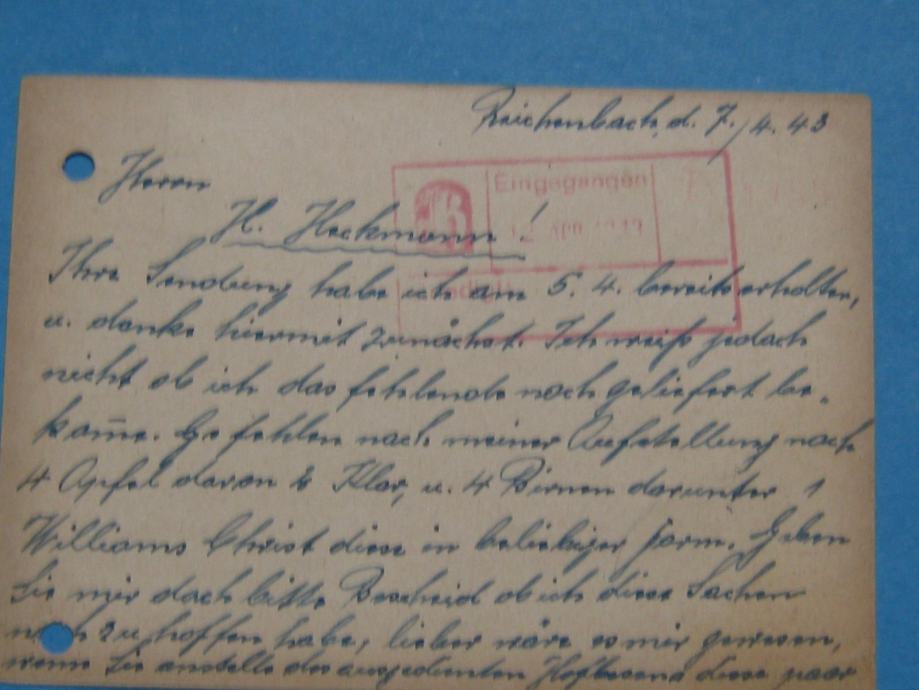 Reichenbach, d. 7./4. 43
Herrn
H. Heckmann!
Eingegangen
12 APR 1943
Ihre Sendung habe ich am 5. 4. bereits erhalten,
u. danke hiermit zunächst. Ich weiß jedoch
nicht ob ich das fehlende noch geliefert be-
komme. Es fehlen nach meiner Aufstellung noch
4 Apfel davon 2 Klar, u. 4 Birnen darunter 1
Williams Christ diese in beliebiger form. Geben
Sie mir doch bitte Bescheid ob ich diese Sachen
noch zu hoffen habe, lieber wäre es mir gewesen,
wenn Sie anstelle des ausgedienten diese paar